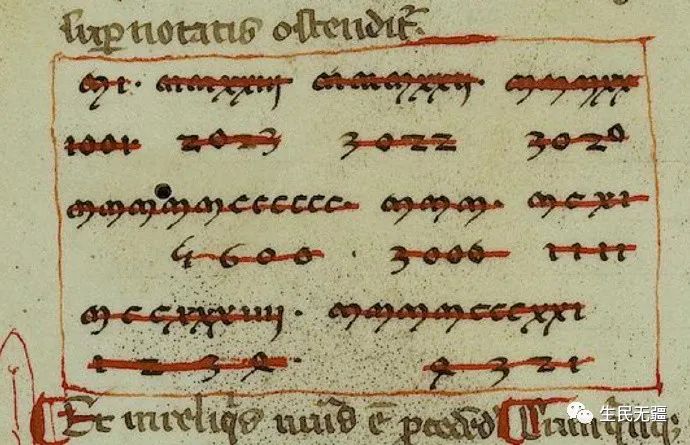 sup notatis ostendit̃.
mi. mmxxiij mmmxxij. mmmxx
1001 2023 3022 3020
mmmmmcccccc. mmm. mcxi
5600 . 3000 1111
mccxxxiiij. mmmmcccxxi
1234. 4321
Et in reliqs nuĩs ẽ pcedẽd
生民无疆